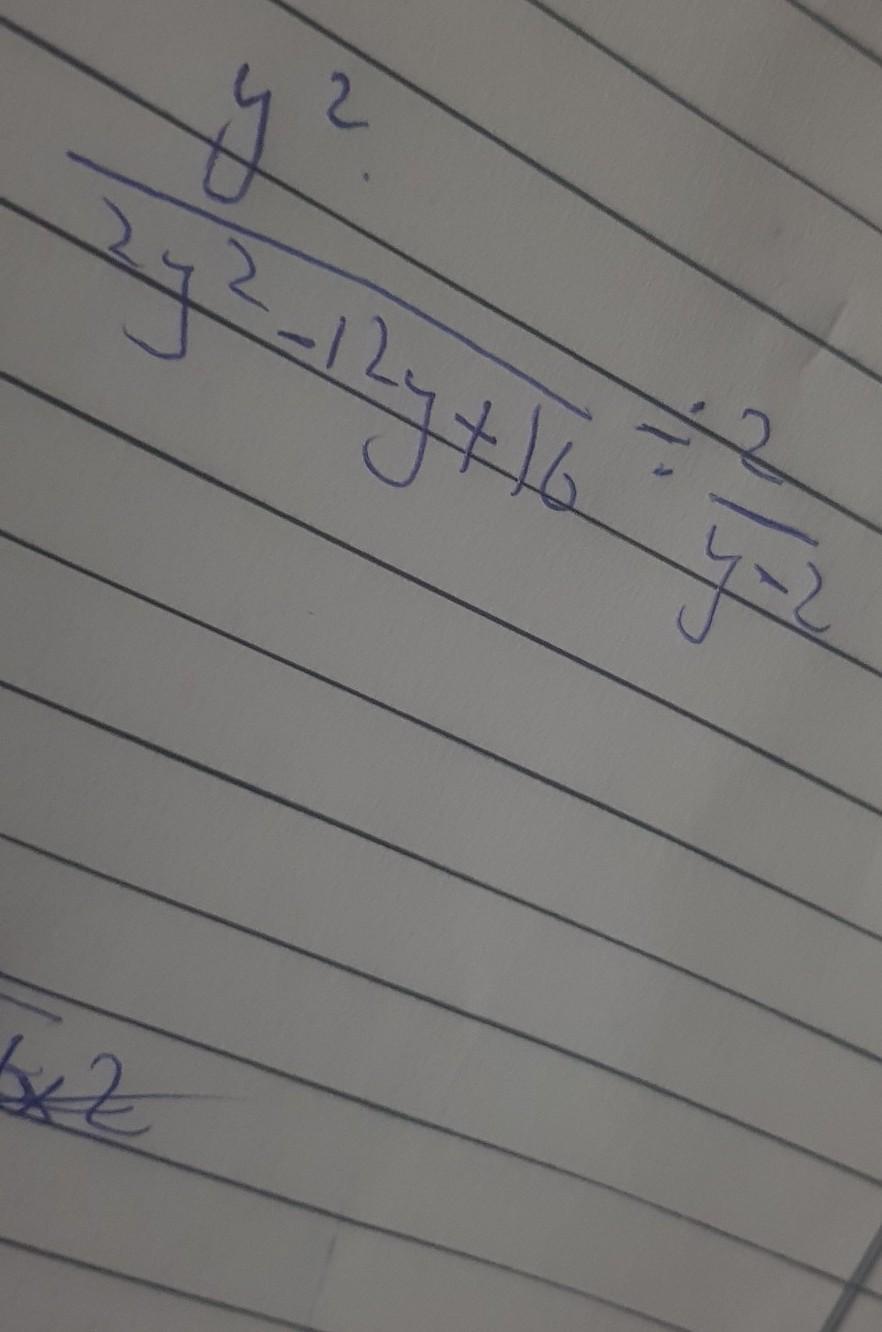 y²
2y² - 12y + 16 ÷ 2
y - 2